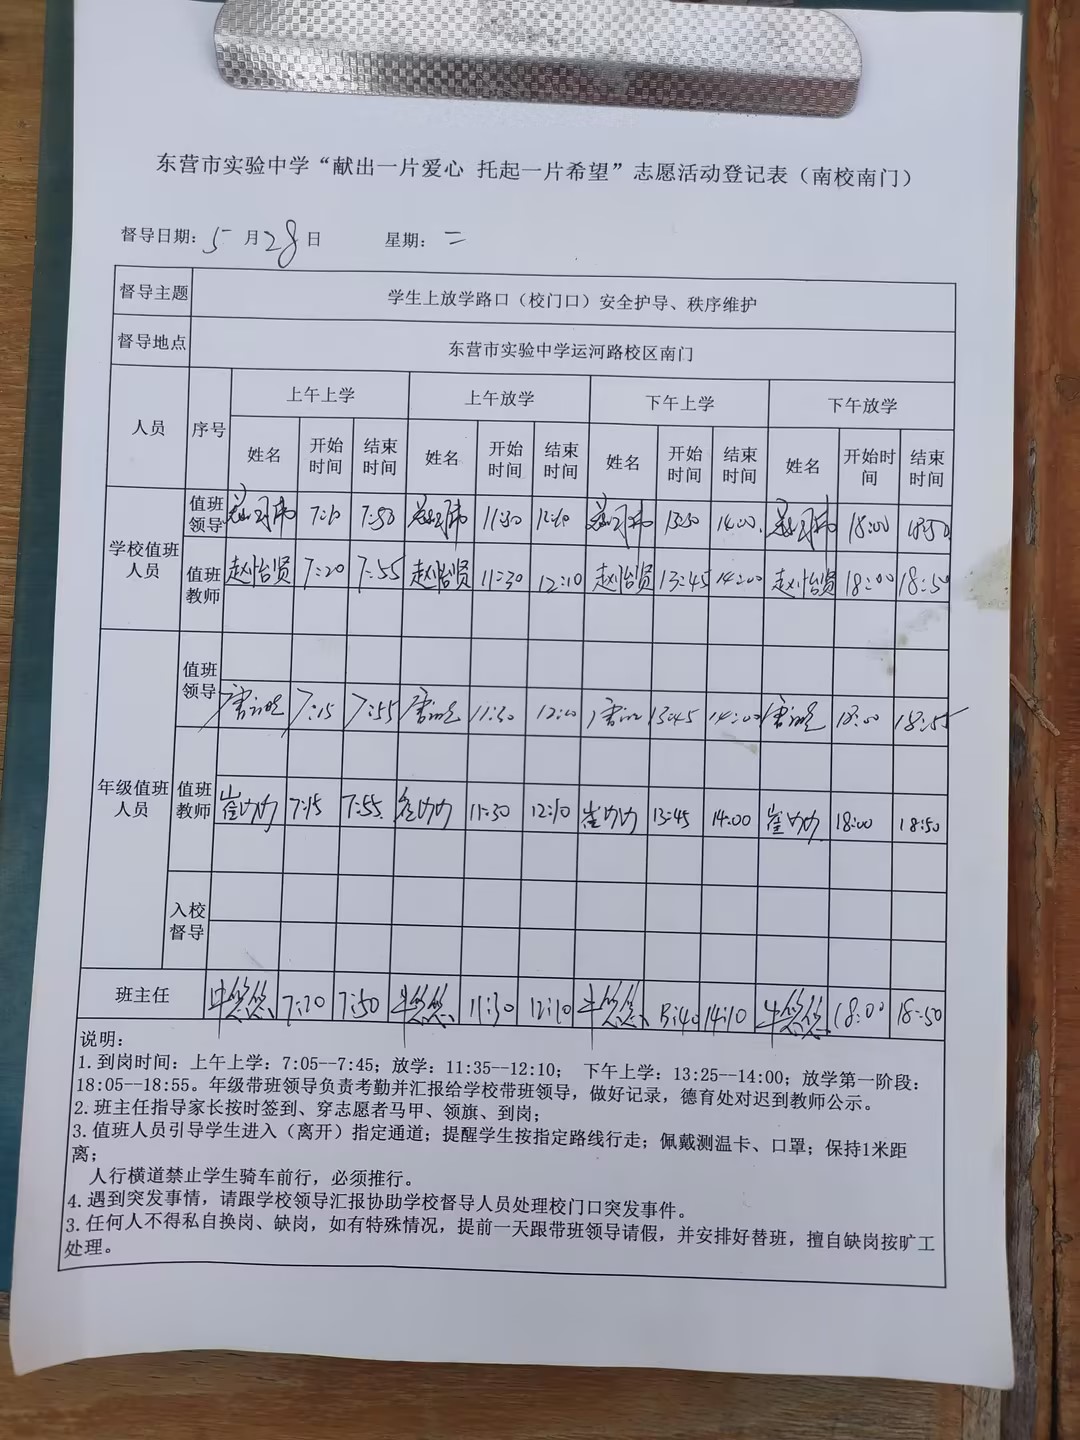 东营市实验中学“献出一片爱心 托起一片希望”志愿活动登记表（南校南门）
督导日期：5月28日 星期：二
督导主题 学生上放学路口（校门口）安全护导、秩序维护
督导地点 东营市实验中学运河路校区南门
人员 序号 上午上学 上午放学 下午上学 下午放学
姓名 开始时间 结束时间 姓名 开始时间 结束时间 姓名 开始时间 结束时间 姓名 开始时间 结束时间
学校值班人员
值班领导 7:50 11:30 13:50 14:00 18:00 18:50
值班教师 赵怡贤 7:20 7:55 赵怡贤 11:30 12:10 赵怡贤 13:45 14:00 赵怡贤 18:00 18:50
年级值班人员
值班领导 7:15 7:55 11:30 13:45 14:00 18:00 18:55
值班教师 崔力力 7:15 7:55 崔力力 11:30 12:10 崔力力 13:45 14:00 崔力力 18:00 18:50
入校督导
班主任 牛悠悠 7:20 7:50 牛悠悠 11:30 12:10 牛悠悠 13:40 14:10 牛悠悠 18:00 18:50
说明：
1. 到岗时间：上午上学：7:05--7:45；放学：11:35--12:10； 下午上学：13:25--14:00；放学第一阶段：
18:05--18:55。年级带班领导负责考勤并汇报给学校带班领导，做好记录，德育处对迟到教师公示。
2. 班主任指导家长按时签到、穿志愿者马甲、领旗、到岗；
3. 值班人员引导学生进入（离开）指定通道；提醒学生按指定路线行走；佩戴测温卡、口罩；保持1米距
离；
人行横道禁止学生骑车前行，必须推行。
4. 遇到突发事情，请跟学校领导汇报协助学校督导人员处理校门口突发事件。
3. 任何人不得私自换岗、缺岗，如有特殊情况，提前一天跟带班领导请假，并安排好替班，擅自缺岗按旷工
处理。